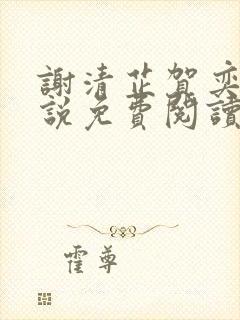 謝清芷賀奕
說免費閱讀
霍尊